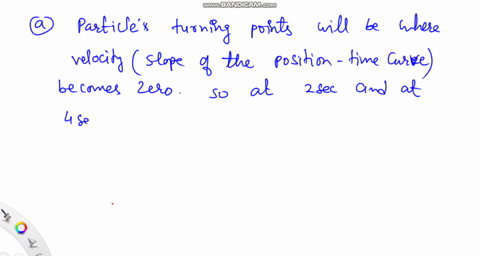 www.BANDICAM.com
(a) Particle's turning points will be where
velocity (slope of the position-time curve)
becomes zero. so at 2sec and at
4se